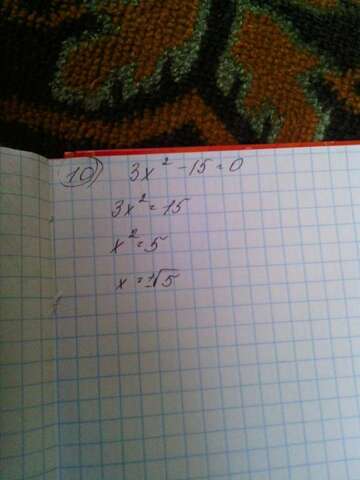 10) 3x² - 15 = 0
3x² = 15
x² = 5
x = √5